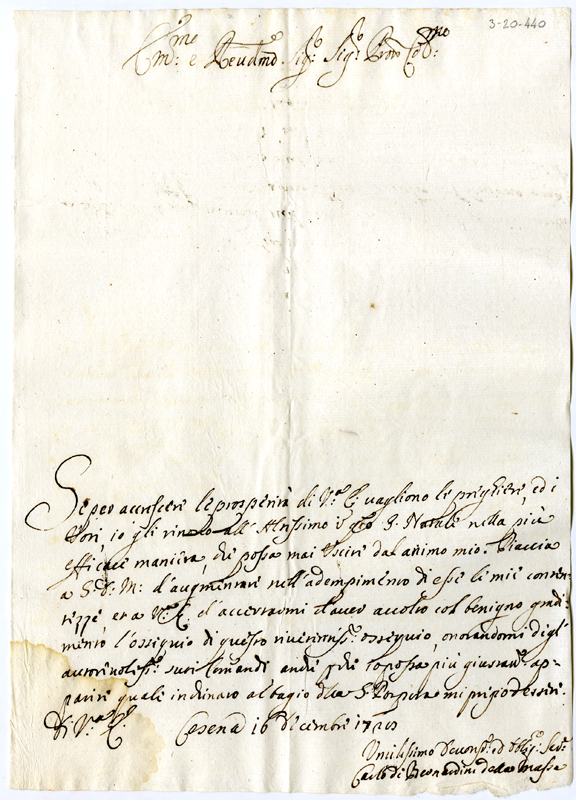 3-20-440
Em:mo e Reudmo. Sig.o Sig.o Pron Col:mo
Se per accrescere le prosperità di V.ra E: vagliono le preghiere, ed i
Voti, io gli rinovo all' Altissimo il S. Natale nella più
efficace maniera, che possa mai uscire dal animo mio. Piaccia
a S. D. M: d'augmentare nell'adempimento di esse le mie conten-
tezze, et a V.E. d'accertarmi d'aver accolto col benigno gradi-
mento l'ossequio di questo riverentiss.o ossequio, onorandomi degl'
autorevoliss.i suoi comandi possa più giustam.te ap-
parire quale inchinato al bagio della S. Porpora mi pregio d'essere.
Di V.ra E.
Cesena 16 Dicembre
Umilissimo Deuotiss.o ed Obbl.o Ser.e
Carlo di Bernardini della Massa